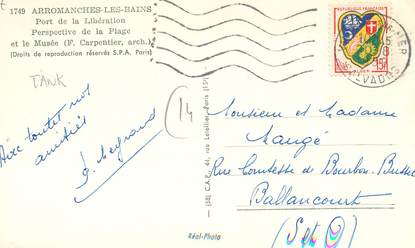 1749 ARROMANCHES-LES-BAINS
Port de la Libération
Perspective de la Plage
et le Musée (F. Carpentier, arch.)
(Droits de reproduction réservés S.P.A. Paris)
TANK
14
Avec toutes nos
amitiés
Monsieur et Madame
Maugé
Rue Comtesse de Bourbon-Busset
Ballancourt
(S et O)
Réal-Photo
CALVADOS